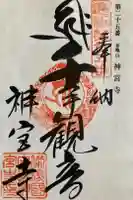 第二十五番
神宮寺
奉納
千手観音
神宮寺